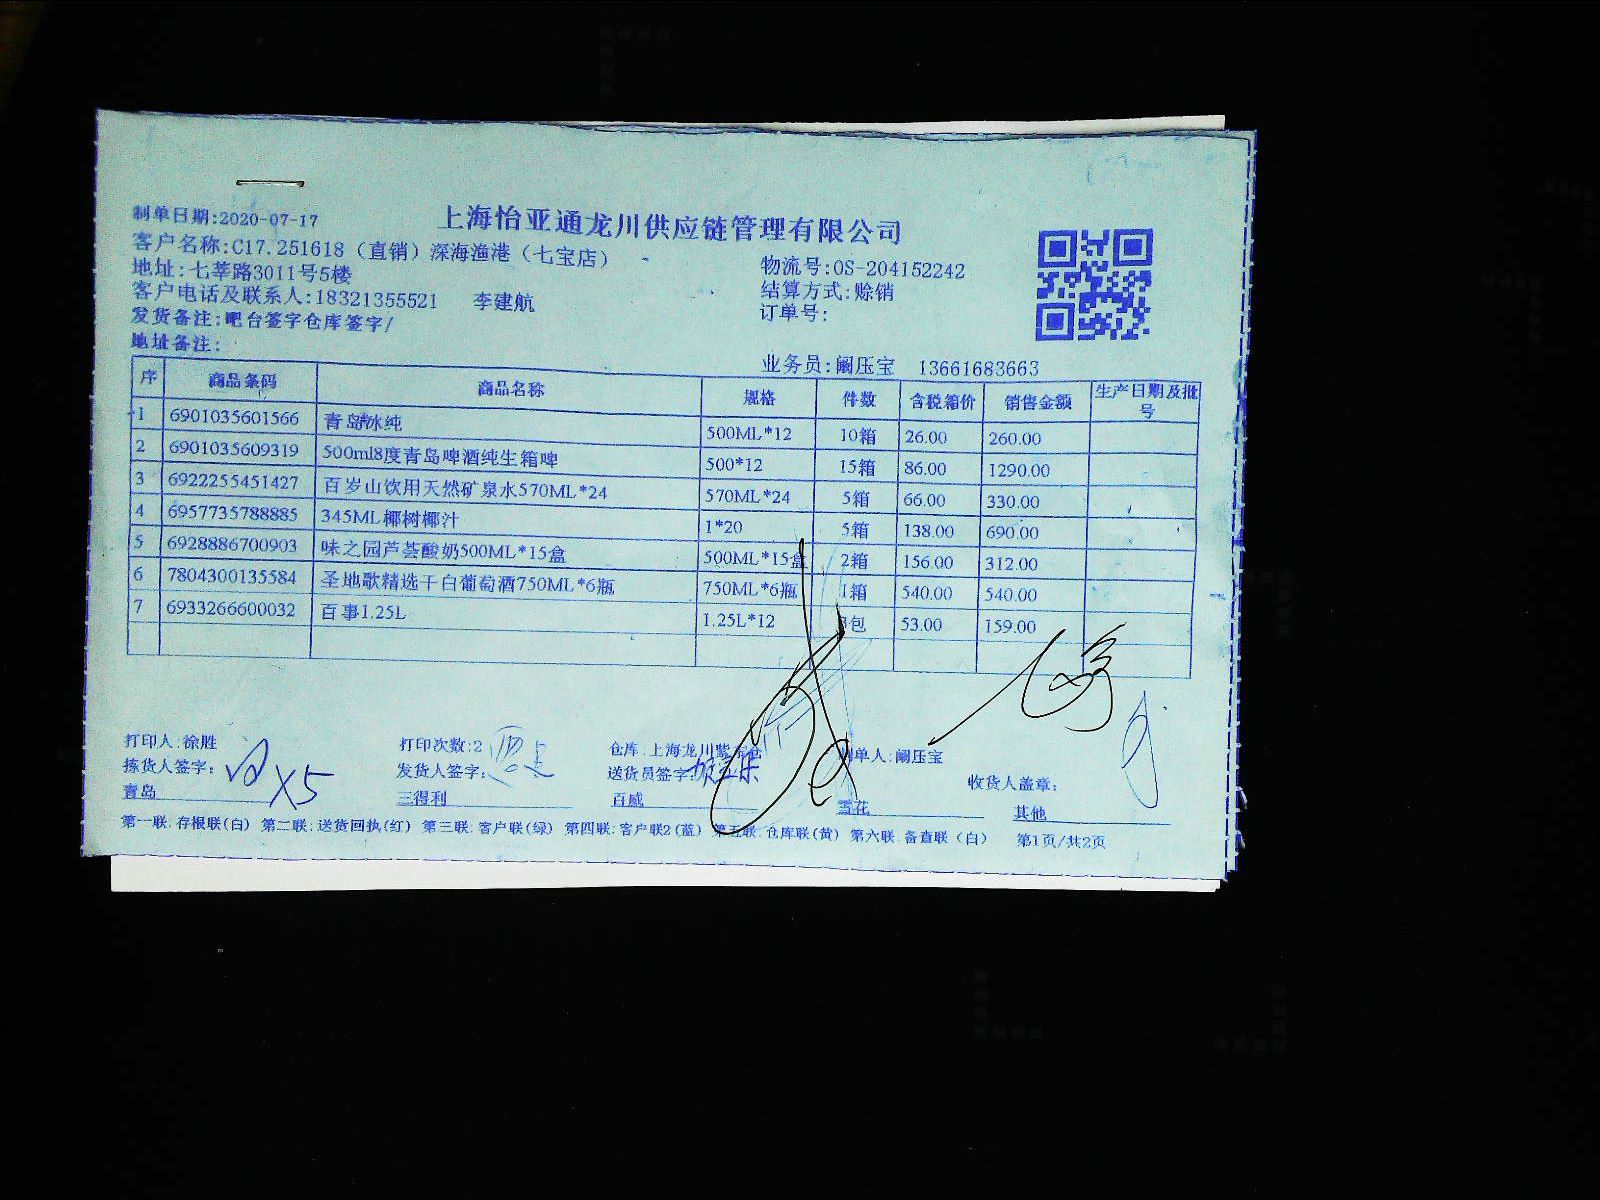 上海怡亚通龙川供应链管理有限公司
制单日期:2020-07-17
客户名称:C17.251618（直销）深海渔港（七宝店）
物流号:OS-204152242
地址:七莘路3011号5楼
结算方式:赊销
客户电话及联系人:18321355521 李建航
订单号:
发货备注:吧台签字仓库签字/
地址备注:
业务员:阚压宝 13661683663
序 商品条码 商品名称 规格 件数 含税箱价 销售金额 生产日期及批号
1 6901035601566 青岛冰纯 500ML*12 10箱 26.00 260.00
2 6901035609319 500ml8度青岛啤酒纯生箱啤 500*12 15箱 86.00 1290.00
3 6922255451427 百岁山饮用天然矿泉水570ML*24 570ML*24 5箱 66.00 330.00
4 6957735788885 345ML椰树椰汁 1*20 5箱 138.00 690.00
5 6928886700903 味之园芦荟酸奶500ML*15盒 500ML*15盒 2箱 156.00 312.00
6 7804300135584 圣地歌精选干白葡萄酒750ML*6瓶 750ML*6瓶 1箱 540.00 540.00
7 6933266600032 百事1.25L 1.25L*12 3包 53.00 159.00
打印人:徐胜 打印次数:2 仓库:上海龙川紫东仓 制单人:阚压宝
拣货人签字: X5 发货人签字: 送货员签字: 收货人盖章:
青岛 三得利 百威 雪花 其他
第一联:存根联(白) 第二联:送货回执(红) 第三联:客户联(绿) 第四联:客户联2(蓝) 第五联:仓库联(黄) 第六联:备查联（白） 第1页/共2页